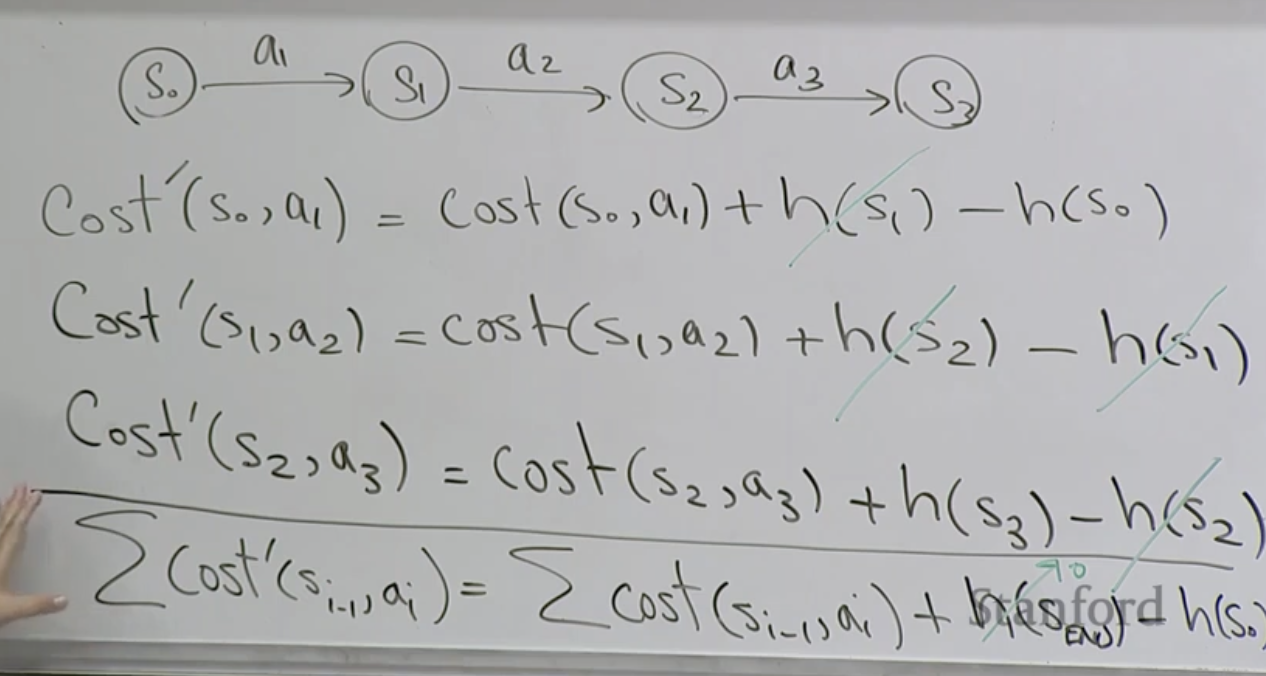 S₀ a₁ S₁ a₂ S₂ a₃ S₃
Cost'(s₀, a₁) = Cost(s₀, a₁) + h(s₁) - h(s₀)
Cost'(s₁, a₂) = cost(s₁, a₂) + h(s₂) - h(s₁)
Cost'(s₂, a₃) = cost(s₂, a₃) + h(s₃) - h(s₂)
∑ Cost'(sᵢ₋₁, aᵢ) = ∑ cost(sᵢ₋₁, aᵢ) + h(s_END) - h(s₀)
0
Stanford